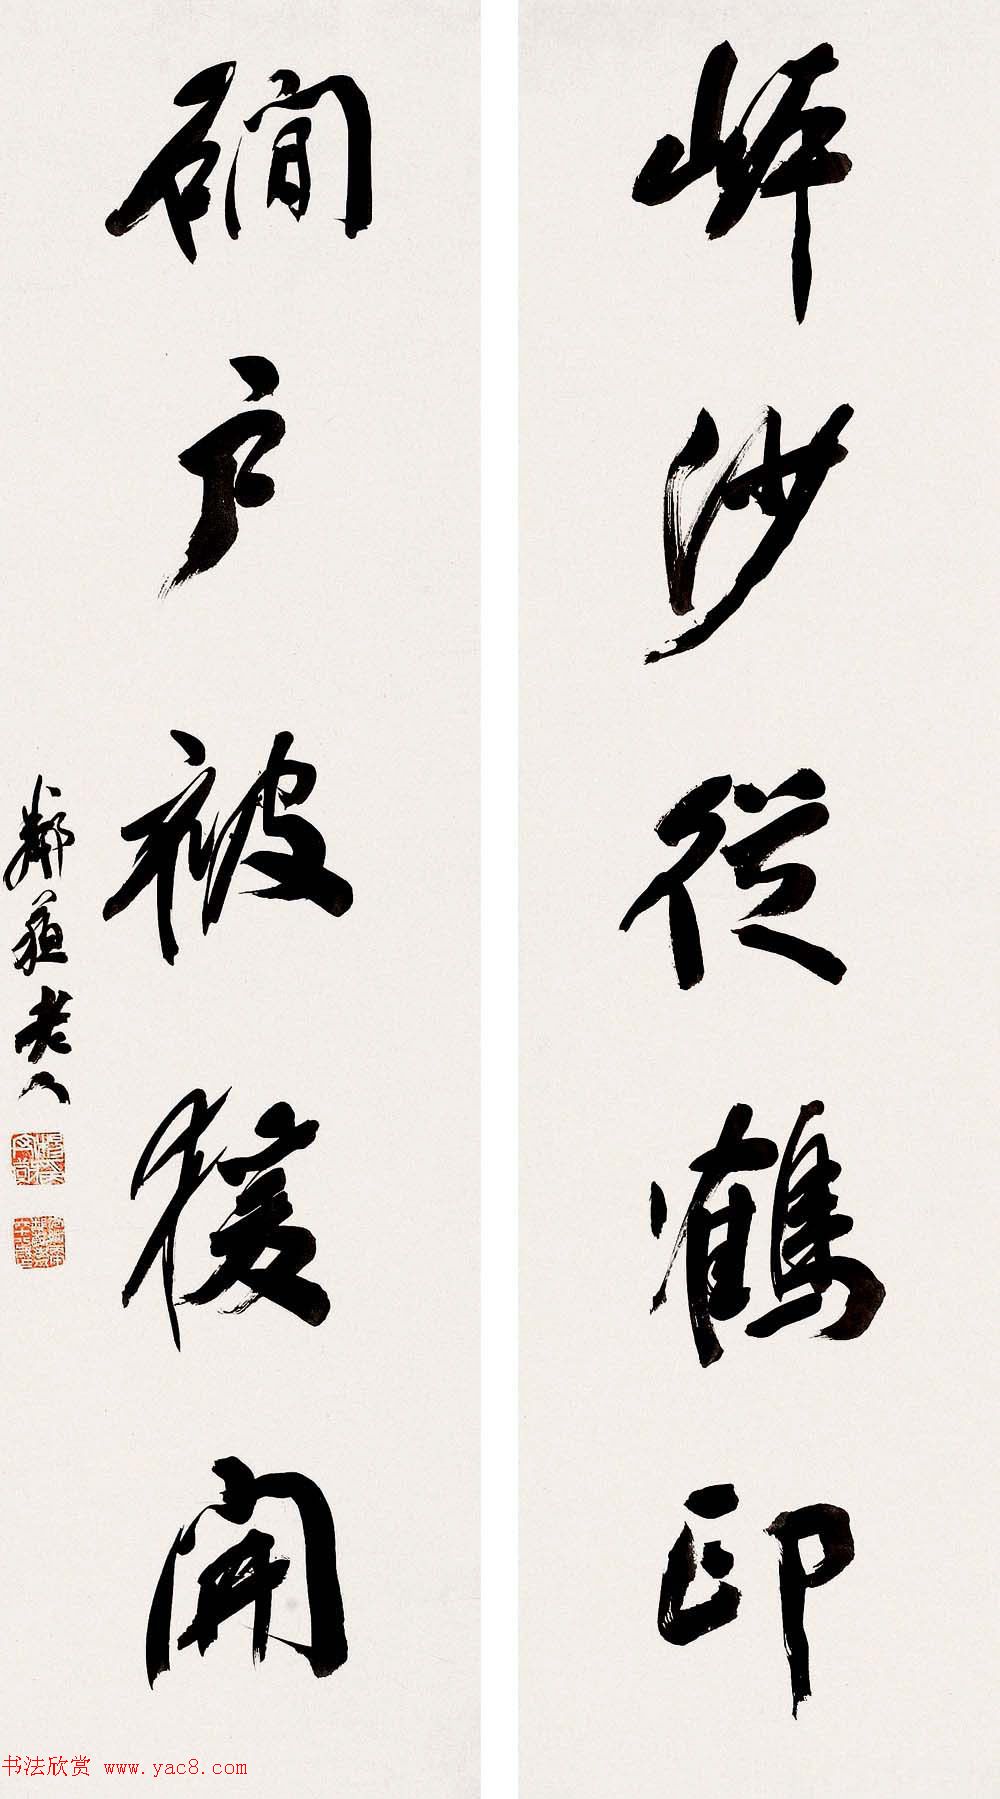 岸沙從鶴印
磵戶被猨開
鄰蘇老人
书法欣赏 www.yac8.com